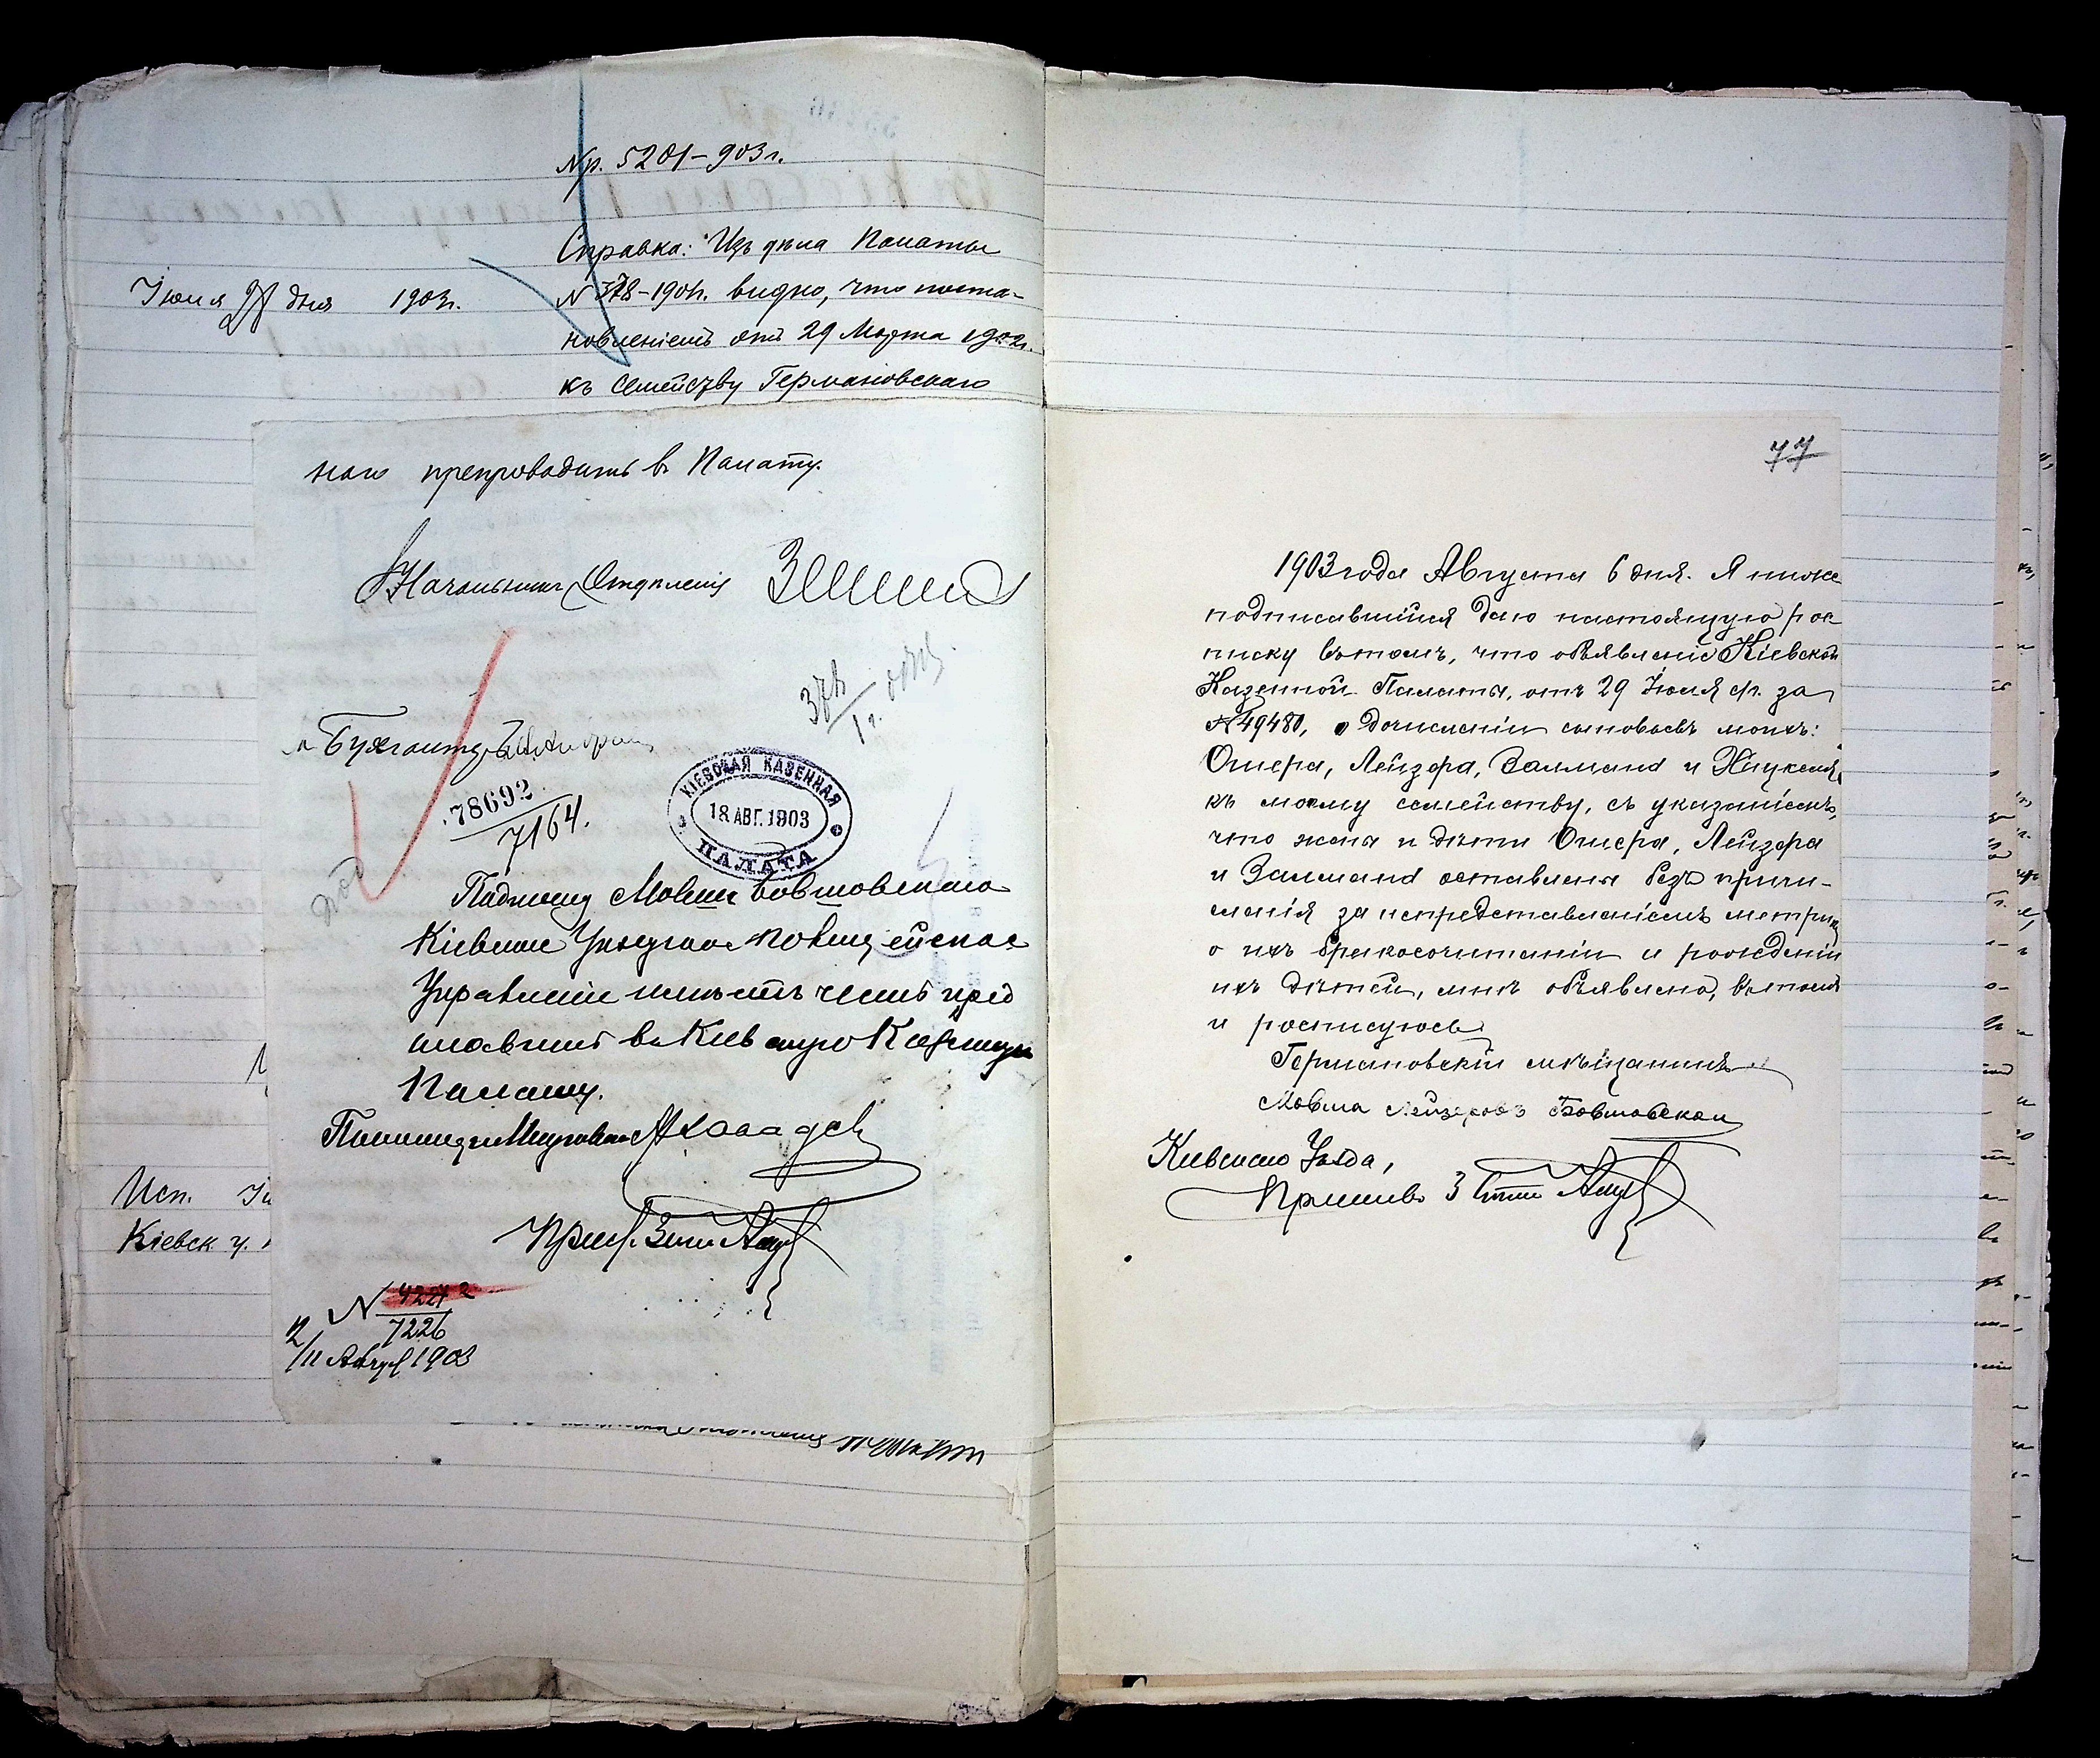 Пр. 5201-903 г.
Справка: Изъ дѣла Палаты
Іюля 28 дня 1903 г.
№ 378-1901г. видно, что поста-
новленіемъ отъ 29 Марта 1902г.
къ семейству Германовскаго
препроводить въ Палату.
Начальникъ Отдѣленія
78692
7164.
КІЕВСКАЯ КАЗЕННАЯ
18 АВГ. 1903
ПАЛАТА
Подписку Мовши Бовшовскаго
Кіевское Уѣздное Полицейское
Управленіе имѣетъ честь пред
ставить въ Кіевскую Казенную
Палату.
№ 42272
7226
11 Август 1903
Исп.
Кіевск у.
77
1903 года Августа 6 дня. Я ниже
подписавшійся даю настоящую рос-
писку въ томъ, что объявленіе Кіевской
Казенной Палаты, отъ 29 Іюля с/г. за
№ 49480, о дочисленіи сыновьевъ моихъ:
Ошера, Лейзера, Залмана и
къ моему семейству, съ указаніемъ,
что жена и дѣти Ошера, Лейзера
и Залмана оставлены безъ причи-
сленія за непредставленіемъ метрик
о ихъ бракосочитаніи и рожденіи
ихъ дѣтей, мнѣ объявлено, въ томъ
и росписуюсь
Германовскій мѣщанинъ
Мовша Лейзеровъ Бовшовскои
Кіевскаго Уѣзда,